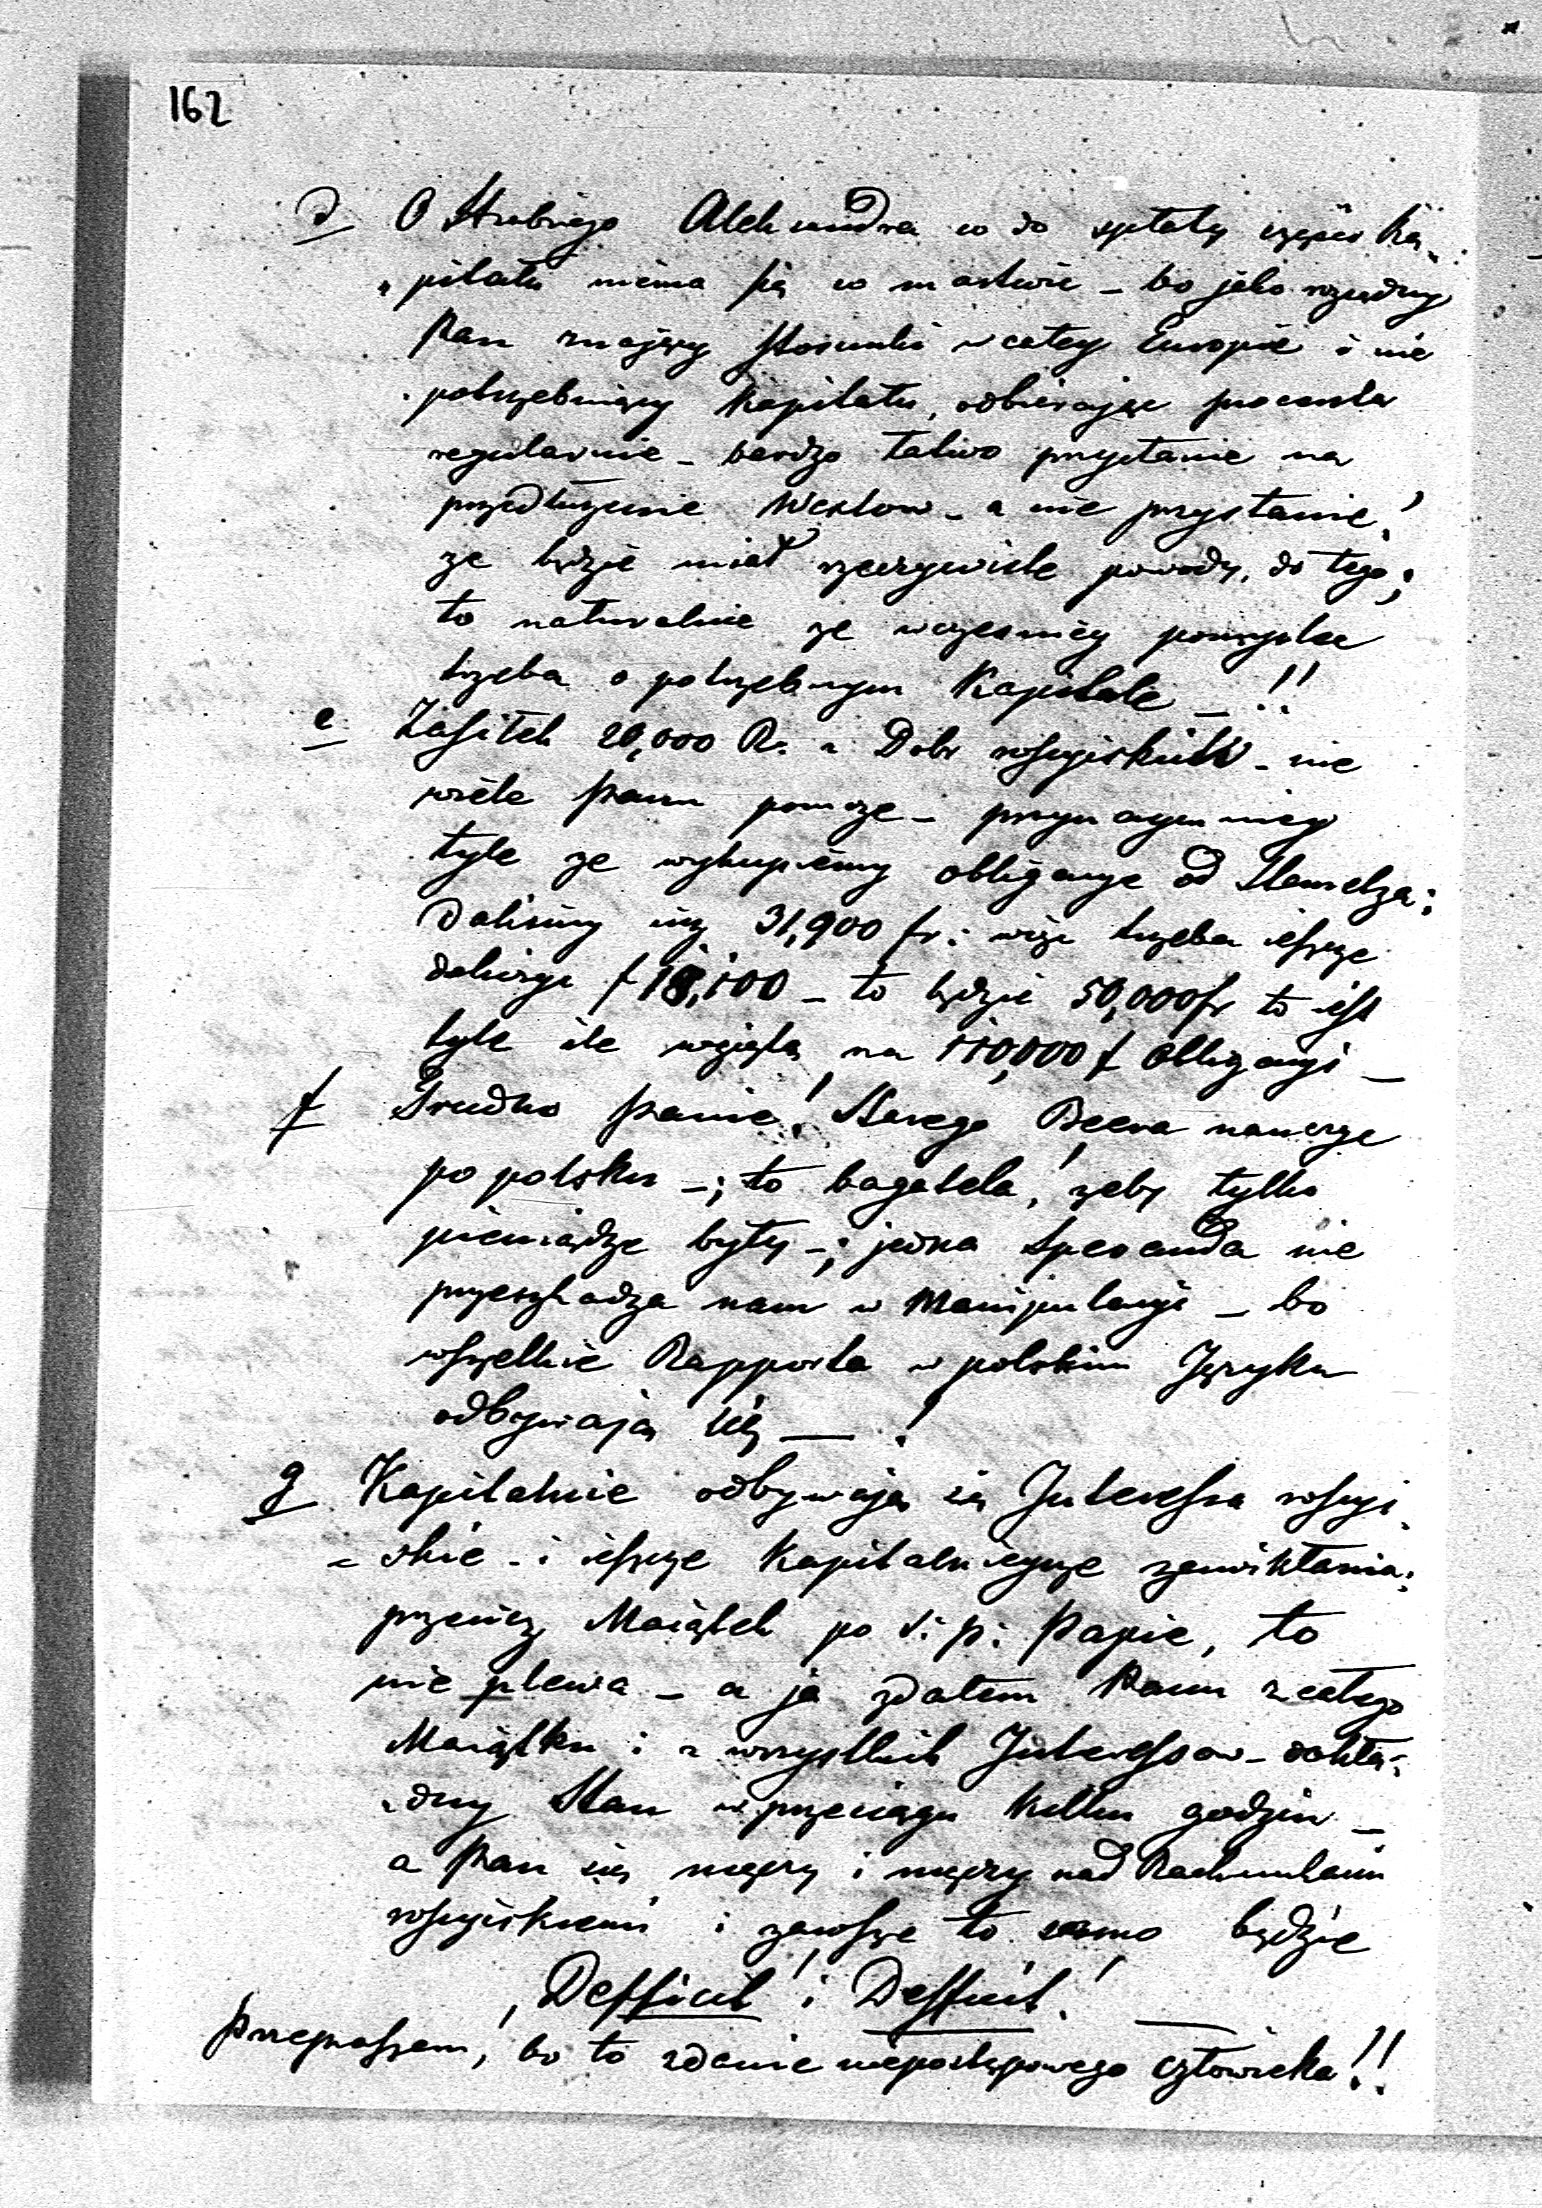 162
d O Hrabiego Alexandra co do spłaty części ka„
„pitału niema się co martwić – bo jako rządny
Pan znający stosunki w całey Europie i nie
potrzebuiący Kapitału, odbierając procenta
regularnie – bardzo łatwo przystanie na
przedłużenie Wexlow – a nie przystanie!
ze będzie miał rzeczywiste powody, do tego;
to naturalnie ze wczesniey pomysleć
trzeba o potrzebnym Kapitale – !!
e Zasiłek 20,000 R. z Dobr rossyiskich – nie
wiele Panu pomoze – przynaymniey
tyle ze wykupiemy obligacye od Hamelza:
Dalismy iuz 31,900 fr: więc trzeba iescze
doliczyc f 18,100 – to będzie 50,000 fr to iest
tyle ile wzięto na 110,000 f Obligacyi –
f Trudno Panie! Starego Beera nauczyc
po polsku –; to bagatela! zeby tylko
pieniądze były –; jedna Speranda nie
przeszkadza nam w Manipulacyi – bo
wszelkie Rapporta w polskim Języku
odbywają się – !
g Kapitalnie odbywają się Interessa rossyi„
„skie – i iescze Kapitalnieysze zawikłania:
przeciez Maiątek po S: p: Papie, to
nie plewa – a ja zdałem Panu z całego
Maiątku i z wszystkich Interessow – dokła„
„dny Stan w przeciągu kilku godzin –
a Pan się męczy i męczy nad Rachunkami
rossyiskiemi i zawsze to samo będzie
Defficit! i Defficit!
Przepraszam, bo to zdanie niepostępowego człowieka!!